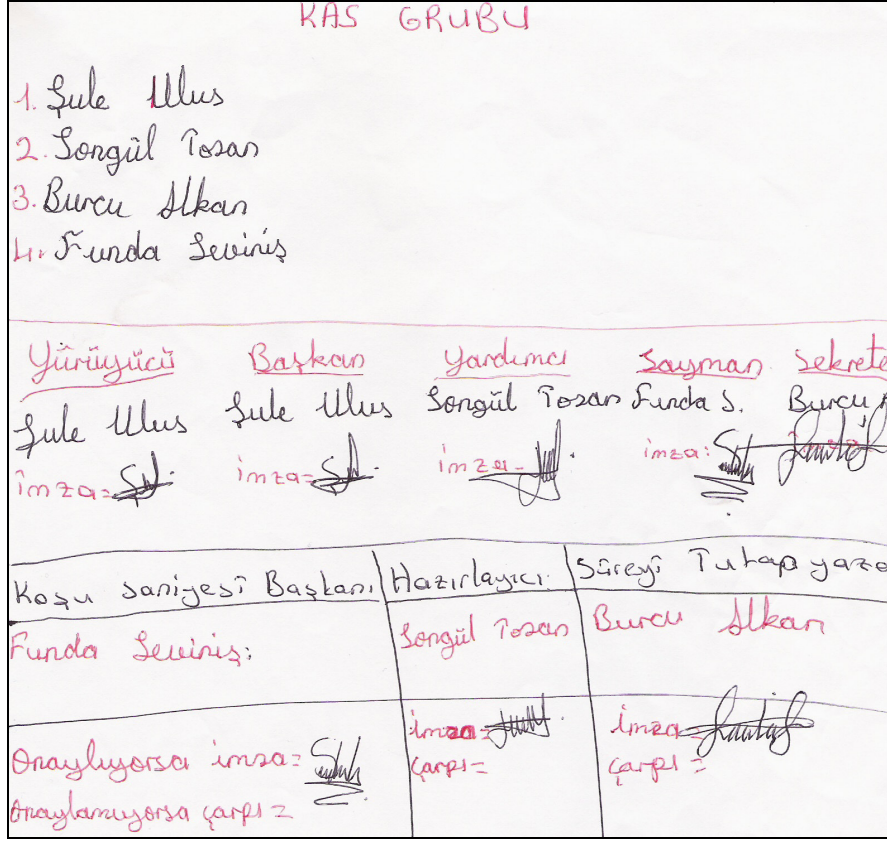 KAS GRUBU
1. Şule Ulus
2. Songül Tosan
3. Burcu Alkan
4. Funda Seviniş
Yürüyücü Başkan Yardımcı Sayman Sekrete
Şule Ulus Şule Ulus Songül Tosan Funda S. Burcu A
imza= imza= imza= imza:
Koşu Saniyesi Başkanı Hazırlayıcı Süreyi Tutap yaza
Funda Seviniş: Songül Tosan Burcu Alkan
Onaylıyorsa imza= imza= imza=
Onaylamıyorsa çarpı= çarpı= çarpı=